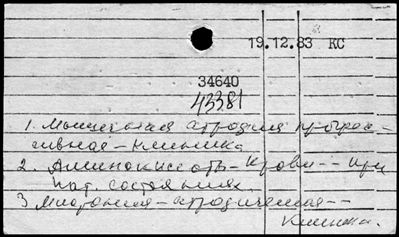 19.12.83 КС
34640
43381
1. Мышечная атрофия прогрес-
сивная - Клиника
2. Аминокислоты - крови -- при
пат. состояниях.
3 Миотония - атрофическая --
Клиника.